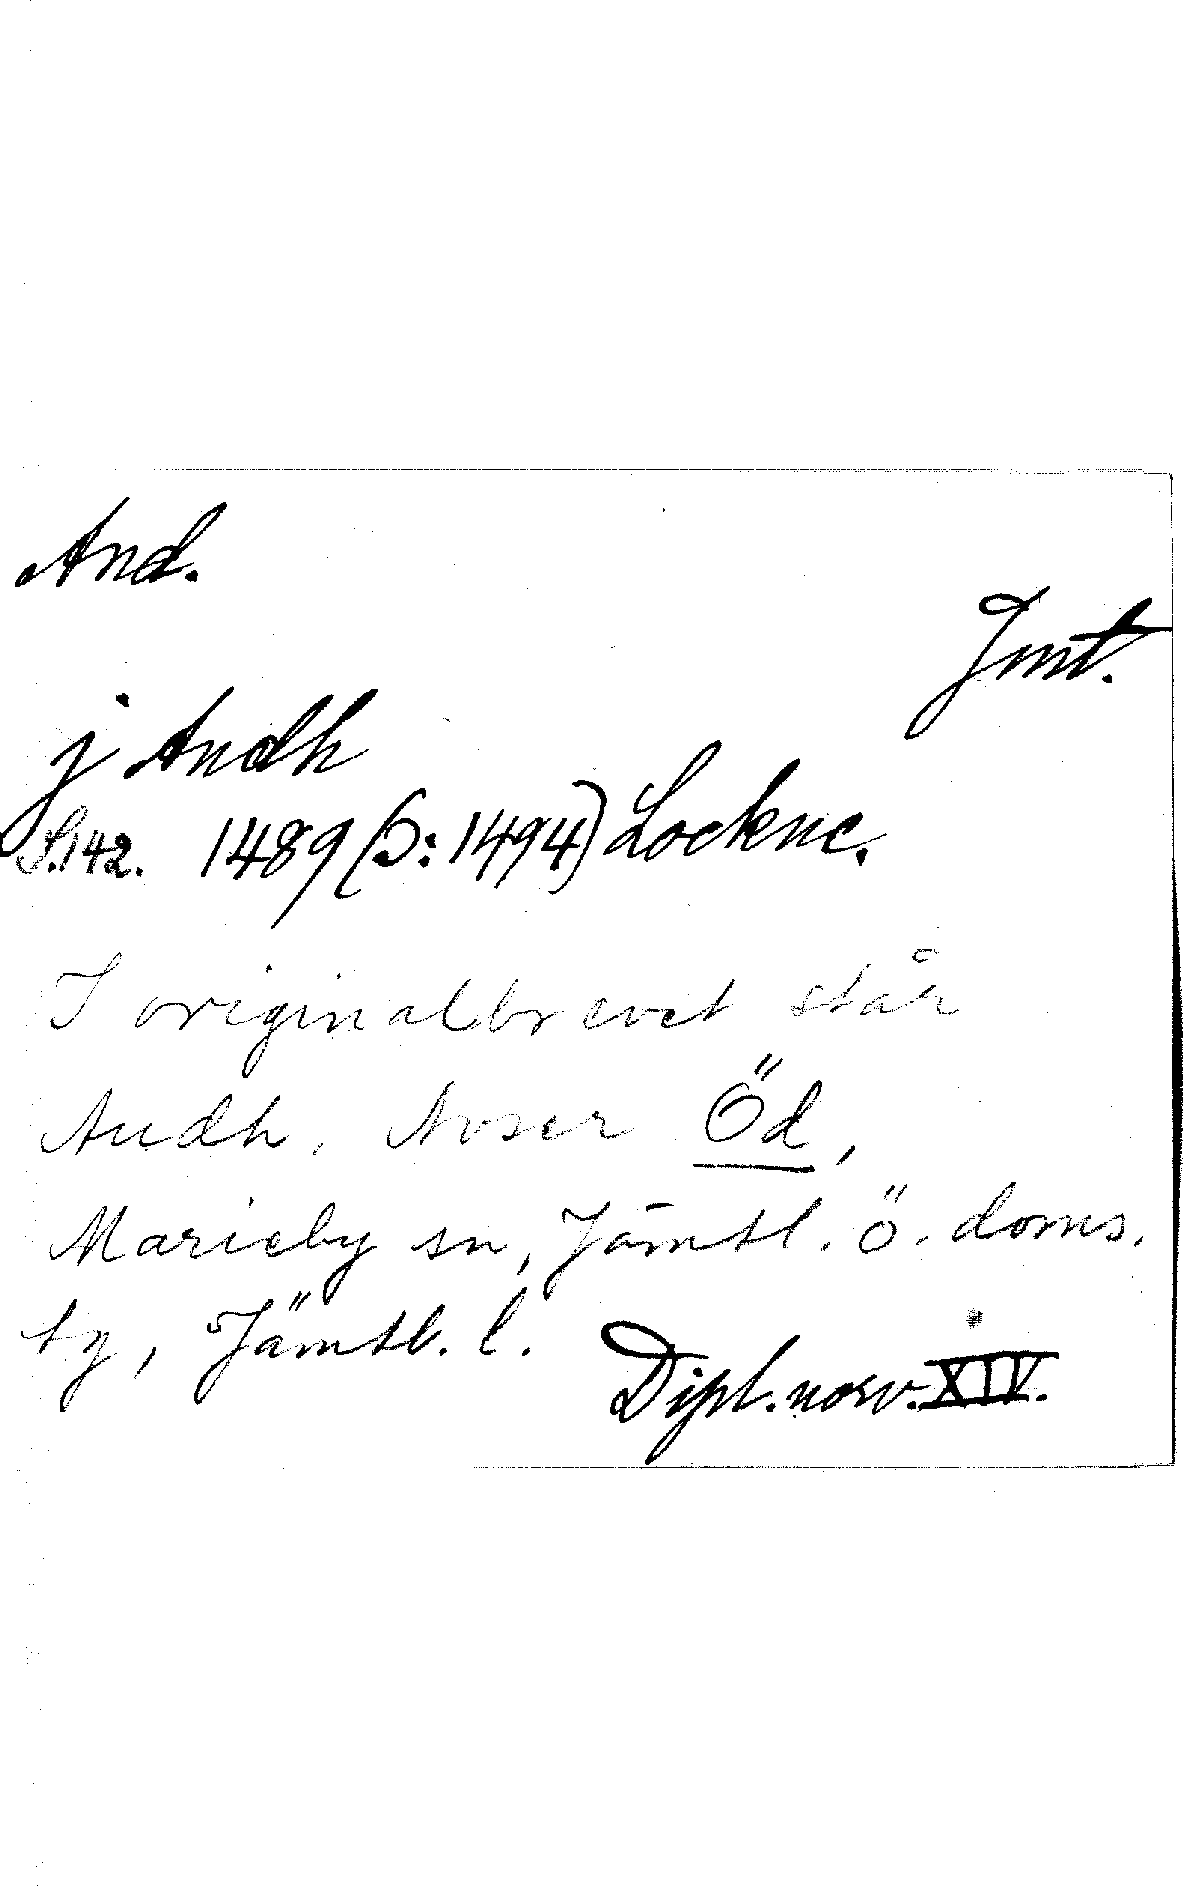 And.
Jmt.
j Andh
S. 142. 1489 (ɔ: 1494) Lockne.
I originalbrevet står
Audh. Avser Öd,
Marieby sn, Jämtl. ö. doms.
tg, Jämtl. l.
Dipl. norv. XIV.